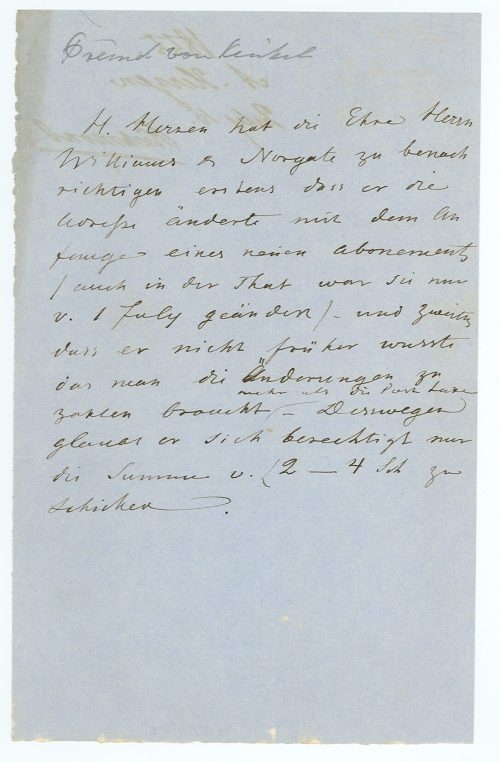 Freund von Kinkel
H. Herzen hat die Ehre Herrn
Williams & Norgate zu benach
richtigen erstens dass er die
Adresse änderte mit dem An
fange eines neuen Abonements
/auch in der That war sie nur
v. 1 July geändert/ – und zweitens
dass er nicht früher wusste
das man die Änderungen zu
mehr als die Post Taxe
zahlen braucht – Desswegen
glaubt er sich berechtigt nur
die Summe v. 2 – 4 Sch zu
schicken.